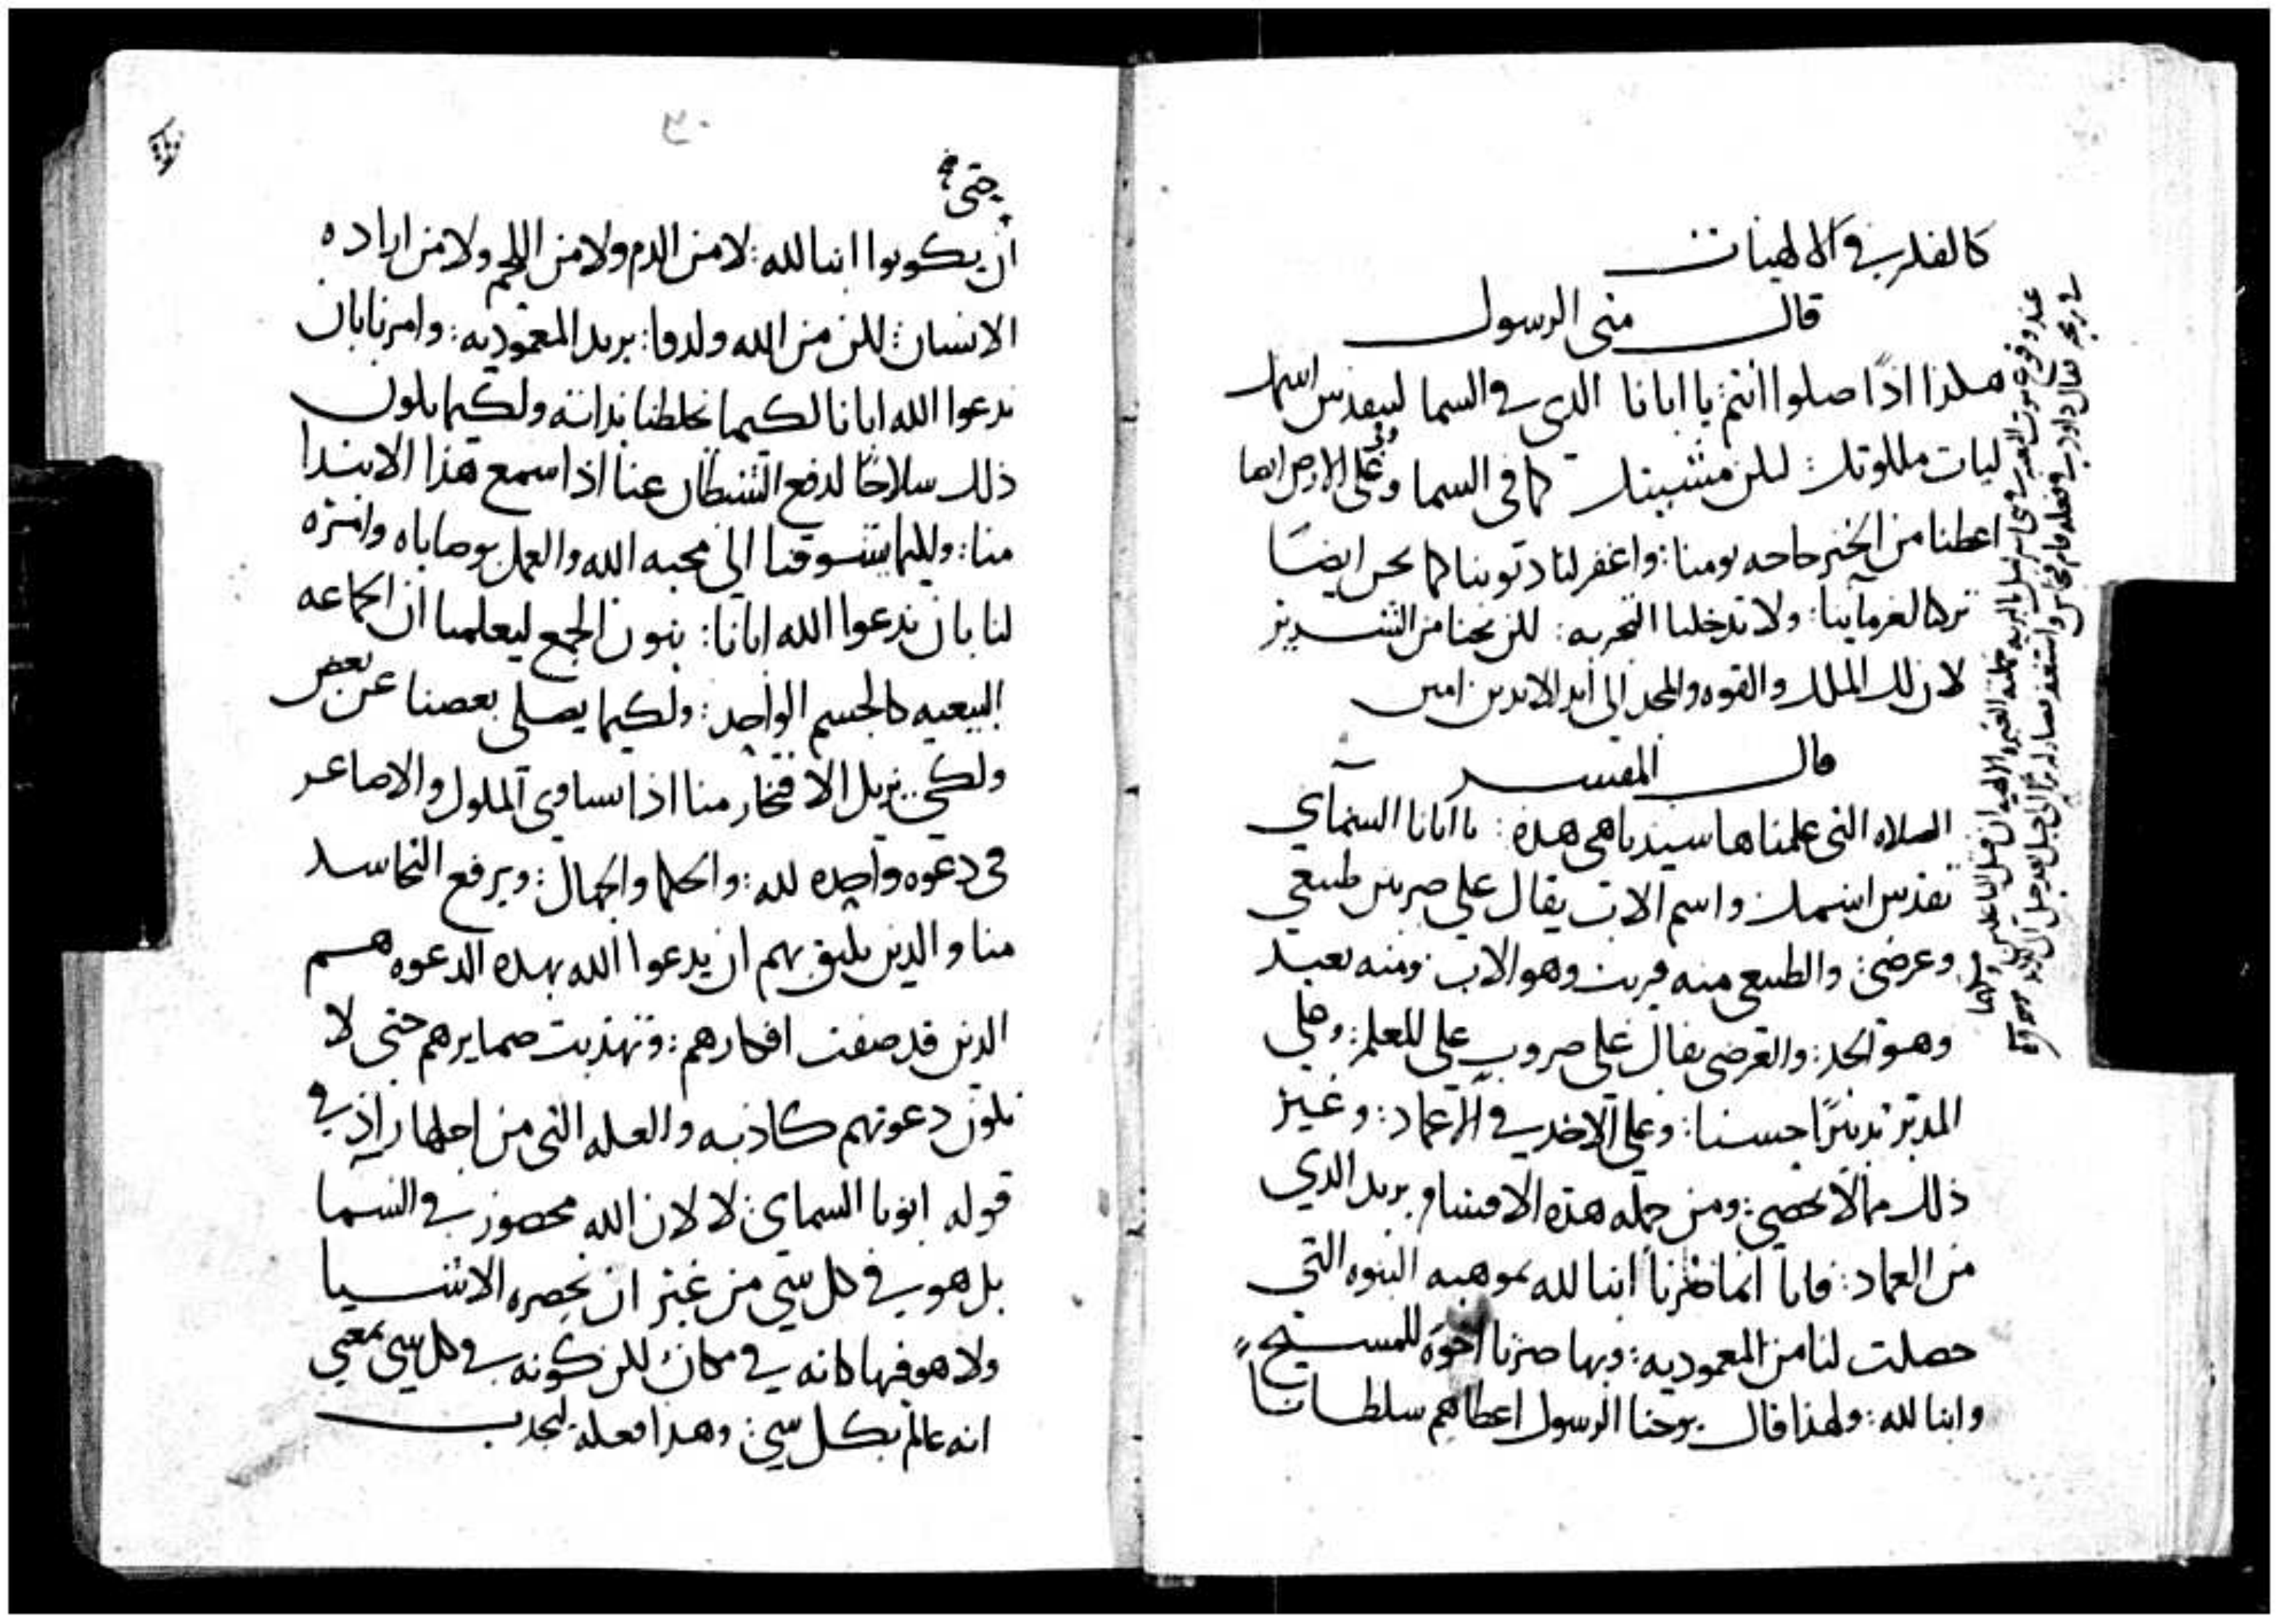 كالفكر في الالهيات
قال متى الرسول
هكذا اذًا صلوا انتم: يا ابانا الدى فى السما ليتقدس اسمك
ليات ملكوتك: لتكن مشيتك كما فى السما وعلى الارض ايضا
اعطنا من الخبز حاجه يومنا: واغفر لنا ديوننا كما نحن ايضًا
تركنا لغرماينا: ولا تدخلنا التجربه: لكن نجنا من الشرير
لان لك الملك والقوه والمجد الى ابد الابدين امين
قال المفسر
الصلاه التى علمناها سيدنا هى هده: يا ابانا السمآي
تقدس اسمك واسم الاب يقال على ضربين طبيعي
وعرضي: والطبيعي منه قريب وهو الاب ومنه بعيد
وهو الجد: والعرضى يقال على ضروب على المعلم: وعلى
المدبر تدبيرًا حسنا: وعلى الاخد فى العماد: وغير
ذلك مما لا يحصى: ومن جمله هذه الاقسام يريد الدي
من العماد: فانا انما صرنا ابنا لله بموهبه البنوه التي
حصلت لنا من المعموديه: وبها صرنا اخوَة للمسيح
وابنا لله: ولهذا قال يوحنا الرسول اعطاهم سلطانا
٣٠
متى
ان يكونوا ابنا لله: لا من الدم ولا من اللحم ولا من اراده
الانسان: لكن من الله ولدوا: يريد المعموديه: وامرنا بان
ندعوا الله ابانا لكيما يخلطنا بذاته ولكيما يكون
ذلك سلاحًا لدفع الشيطان عنا اذا سمع هذا الابتدا
منا: ولكيما يتسوقنا الى محبه الله والعمل بوصاياه وامره
لنا بان ندعوا الله ابانا: بنون الجمع ليعلمنا ان الجماعه
البيعيه كالجسم الواحد: ولكيما يصلى بعضنا عن بعض
ولكي يزيل الافتخار منا اذا تساوى الملوك والاصاغر
فى دعوه واحده لله: والحكما والجهال: ويرفع التحاسد
منا والدين يليق بهم ان يدعوا الله بهده الدعوه هم
الدين قد صفت افكارهم: وتهذبت ضمايرهم حتى لا
تكون دعوتهم كاذبه والعله التى من اجلها زاد في
قوله ابونا السماى: لا لان الله محصور فى السما
بل هو فى كل شي من غير ان تحصره الاشيا
ولا هو فيها كانه في مكان لكن كونه فى كل شى بمعنى
انه عالم بكل شي: وهدا فعله ليجدب